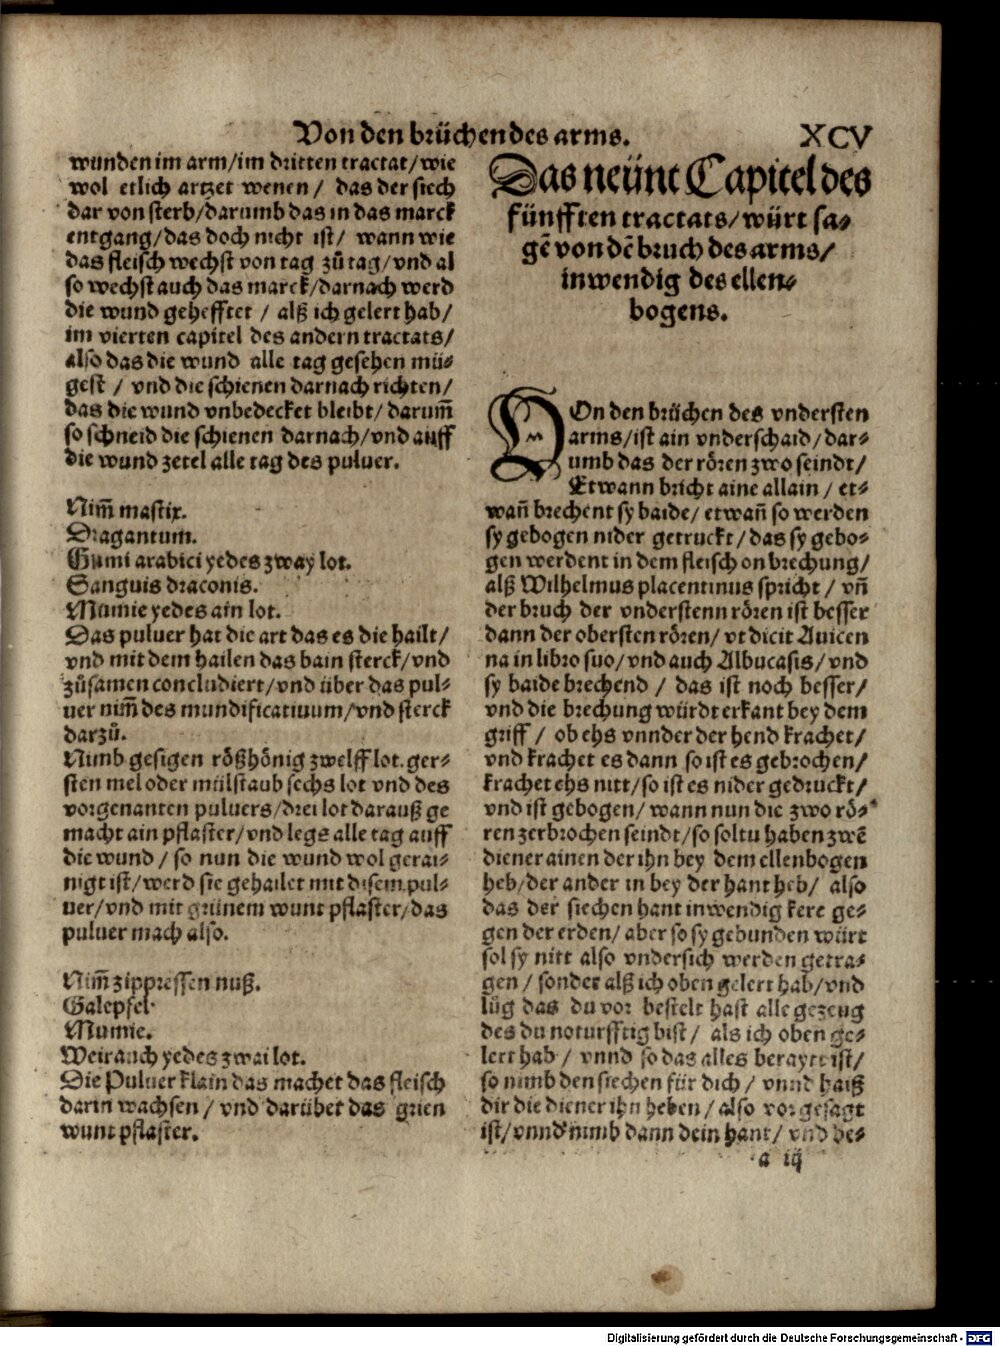 Von den brüchen des arms. XCV
wunden im arm/im dritten tractat/wie
wol etlich artzet wenen / das der siech
dar von sterb/darumb das in das marck
entgang/das doch nicht ist/ wann wie
das fleisch wechst von tag zů tag/vnd al
so wechst auch das marck/darnach werd
die wund gehefftet / alß ich gelert hab/
im vierten capitel des andern tractats/
also das die wund alle tag gesehen mü⸗
gest / vnd die schienen darnach richten/
das die wund vnbedecket bleibt/darum̄
so schneid die schienen darnach/vnd auff
die wund zetel alle tag des puluer.
Nim̄ mastix.
Dragantum.
Gumi arabici yedes zway lot.
Sanguis draconis.
Mumie yedes ain lot.
Das puluer hat die art das es die hailt/
vnd mit dem hailen das bain sterck/vnd
zůsamen concludiert/vnd über das pul⸗
uer nim̄ des mundificatiuum/vnd sterck
darzů.
Nimb gesigen rößhönig zwelff lot. ger⸗
sten mel oder mülstaub sechs lot vnd des
vorgenanten puluers/drei lot darauß ge
macht ain pflaster/vnd legs alle tag auff
die wund / so nun die wund wol gerai⸗
nigt ist/werd sie gehailet mit disem pul⸗
uer/vnd mit grünem wunt pflaster/das
puluer mach also.
Nim̄ zippressen nuß.
Galepfel.
Mumie.
Weirauch yedes zwai lot.
Die Puluer klain das machet das fleisch
darin wachsen / vnd darüber das grien
wunt pflaster.
Das neünt Capitel des
fünfften tractats/würt sa⸗
gē von dē bruch des arms/
inwendig des ellen⸗
bogens.
VOn den brüchen des vndersten
arms/ist ain vnderschaid/dar⸗
umb das der rören zwo seindt/
Etwann bricht aine allain / et⸗
wan̄ brechent sy baide/etwan̄ so werden
sy gebogen nider getruckt/das sy gebo⸗
gen werdent in dem fleisch on brechung/
alß Wilhelmus placentinus spricht / vn̄
der bruch der vnderstenn rören ist besser
dann der obersten rören/vt dicit Auicen
na in libro suo/vnd auch Albucasis/vnd
sy baide brechend / das ist noch besser/
vnd die brechung würdt erkant bey dem
griff / ob ehs vnnder der hend krachet/
vnd krachet es dann so ist es gebrochen/
krachet ehs nitt/so ist es nider gedruckt/
vnd ist gebogen/wann nun die zwo rö⸗
ren zerbrochen seindt/so soltu haben zwē
diener ainen der ihn bey dem ellenbogen
heb/der ander in bey der hant heb/ also
das der siechen hant inwendig kere ge⸗
gen der erden/aber so sy gebunden würt
sol sy nitt also vndersich werden getra⸗
gen / sonder alß ich oben gelert hab/vnd
lůg das du vor bestelt hast alle gezeug
des du noturfftig bist / als ich oben ge⸗
lert hab / vnnd so das alles berayt ist/
so nimb den siechen für dich / vnnd haiß
dir die diener ihn heben/also vor gesagt
ist/vnnd nimb dann dein hant/ vnd be⸗
a iij
Digitalisierung gefördert durch die Deutsche Forschungsgemeinschaft - DFG